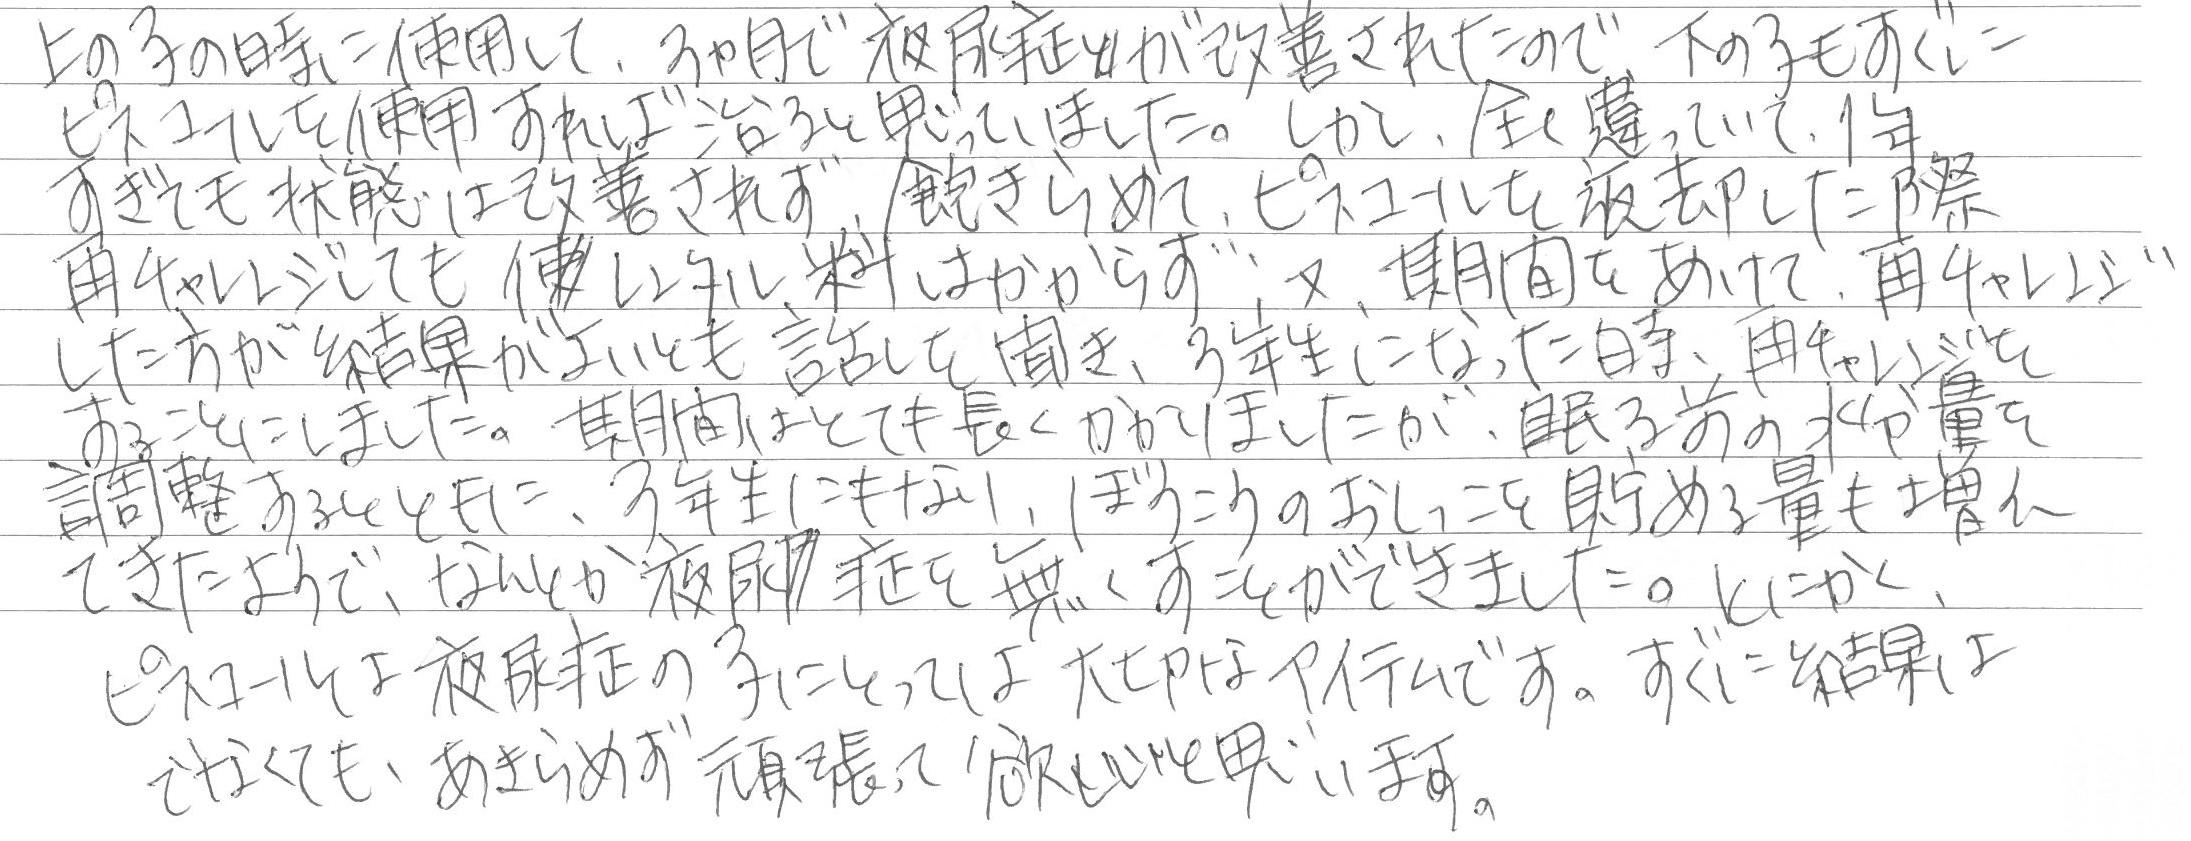 上の子の時に使用して、3ヶ月で夜尿症が改善されたので、下の子もすぐに
ピスコールを使用すれば治ると思っていました。しかし、全く違っていて、1年
すぎても状態は改善されず、諦きらめて、ピスコールを返却した際
再チャレンジしてもレンタル料はかからず、又、期間をあけて、再チャレンジ
した方が結果がよいとも話しを聞き、3年生になった時、再チャレンジを
することにしました。期間はとても長くかかりましたが、眠る前の水分量を
調整するとともに、3年生にもなり、ぼうこうのおしっこを貯める量も増え
てきたようで、なんとか夜尿症を無くすことができました。とにかく、
ピスコールは夜尿症の子にとっては大切なアイテムです。すぐに結果は
でなくても、あきらめず頑張って欲しいと思います。